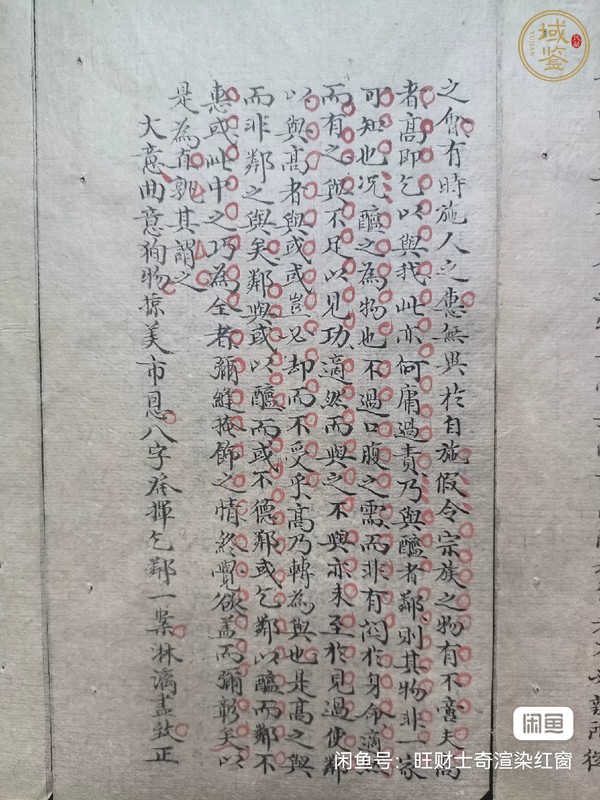 之會有時施人之惠無異於自施假令宗族之物有不啬夫高
者高即乞以與我此亦何庸過責乃與醯者鄰則其物非一家
可知也况醯之為物也不過口腹之需而非有関於身命適然
而有之與不足以見功適然而與之不與亦未至於見過使鄰
以與高者與或或豈必却而不受乎高乃轉為與也是高之與
而非鄰之與矣鄰與或以醯而或不德鄰或乞鄰以醯而鄰不
惠或此中之巧為全者彌縫掩飾之情終覺欲盖而彌彰矣以
是為直孰其謂之
大意曲意狥物掠美市恩八字發揮乞鄰一案淋漓盡致正
域鉴
YUJIAN
闲鱼
闲鱼号：旺财士奇渲染红窗